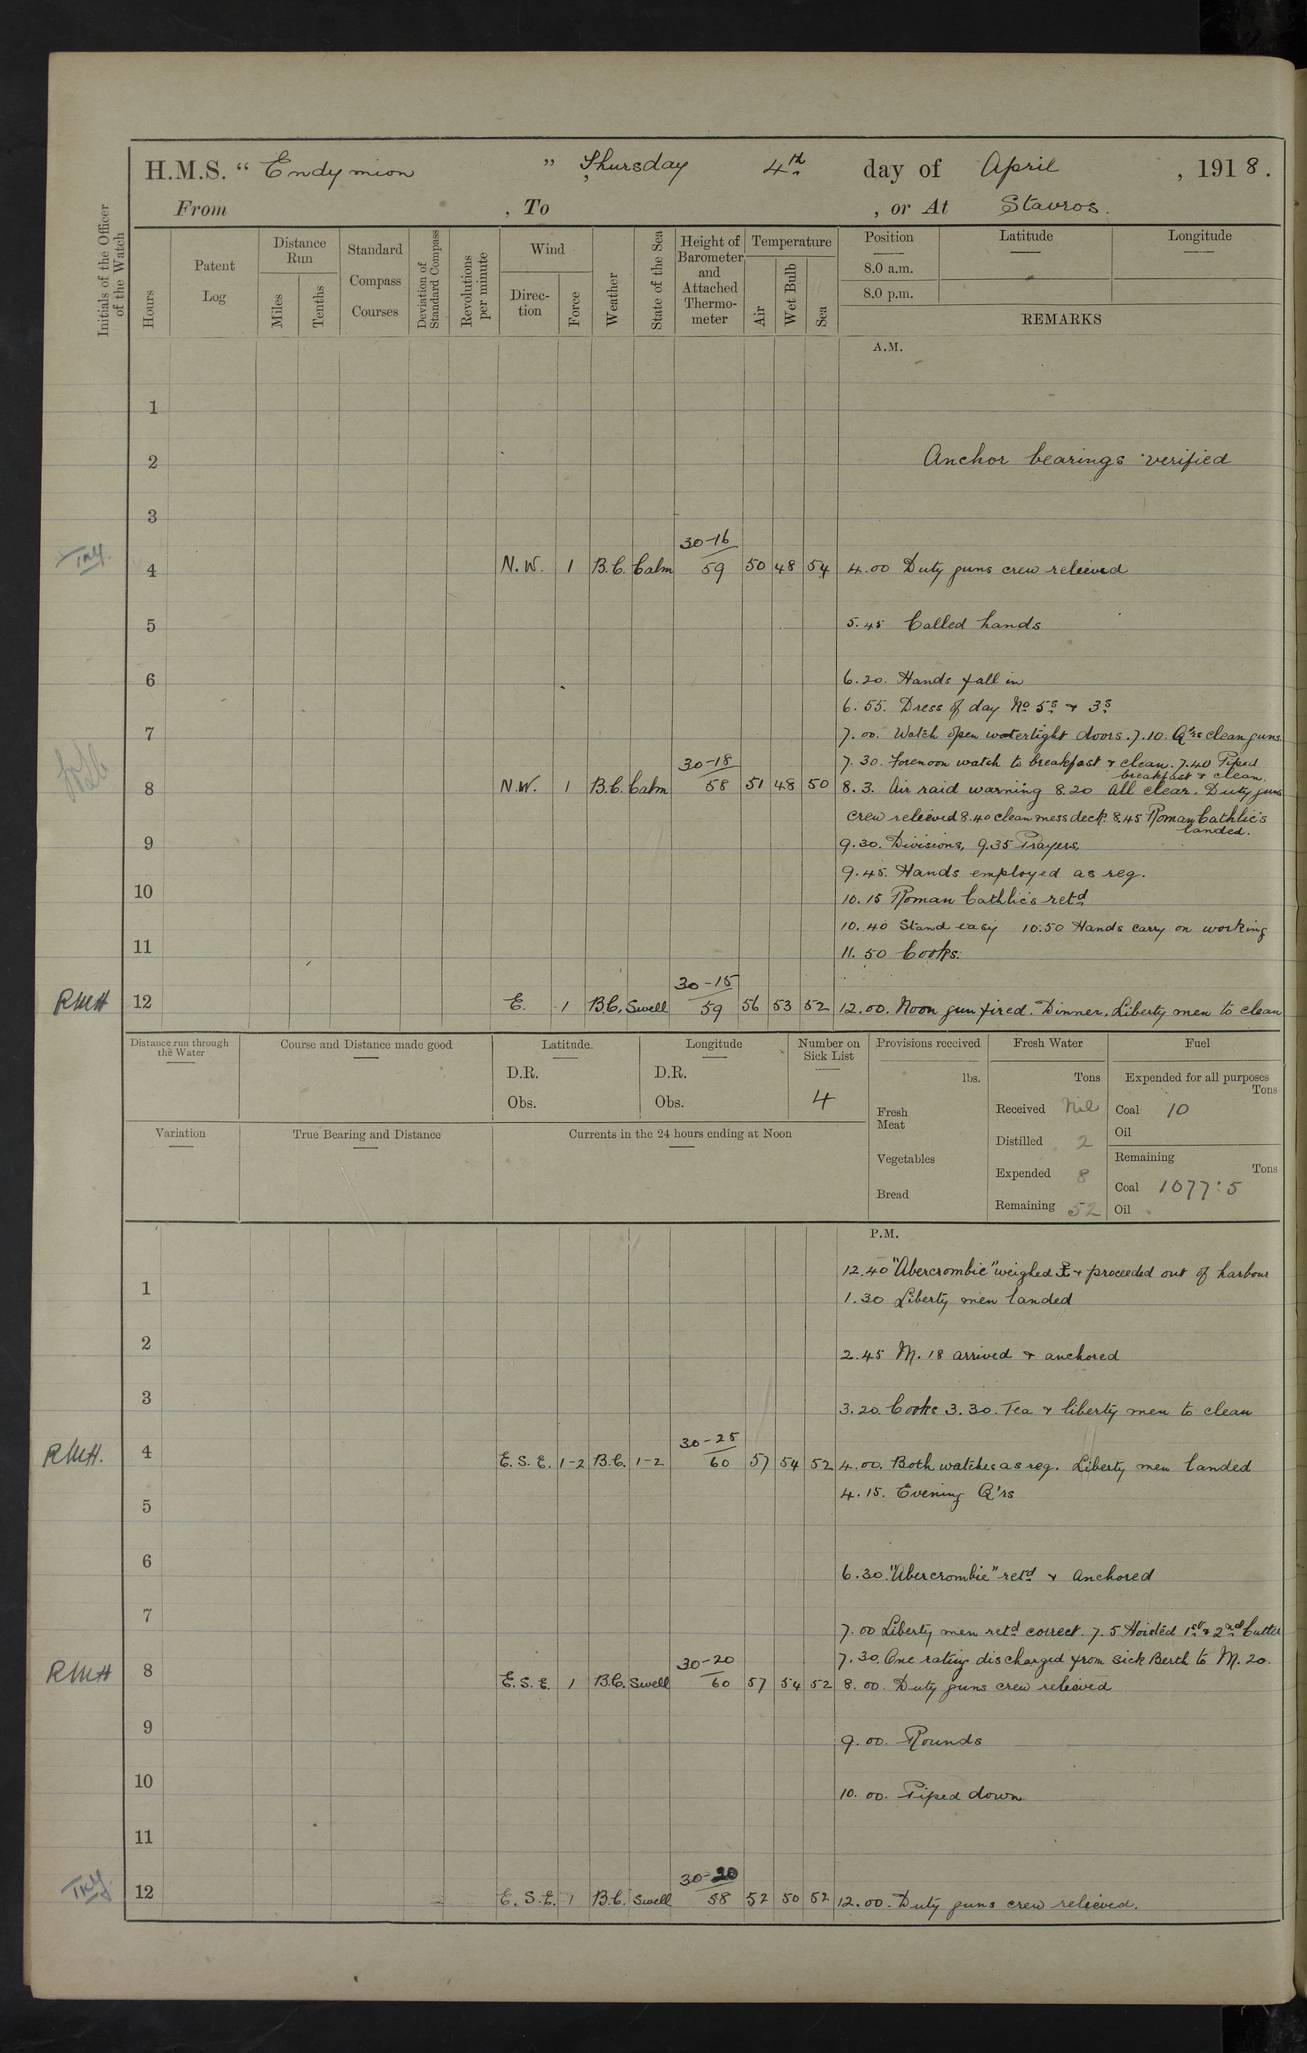 H.M.S. “ Endymion ” Thursday 4th day of April , 1918.
From , To , or At Stavros.
Initials of the Officer of the Watch
Hours
Patent Log
Distance Run
Miles
Tenths
Standard Compass Courses
Deviation of Standard Compass
Revolutions per minute
Wind
Direction
Force
Weather
State of the Sea
Height of Barometer and Attached Thermometer
Temperature
Air
Wet Bulb
Sea
Position
8.0 a.m.
8.0 p.m.
Latitude
Longitude
REMARKS
A.M.
1
2 Anchor bearings verified
3
30-16
4 N.W. 1 B.C. Calm 59 50 48 54 4.00 Duty guns crew relieved
5 5.45 Called hands
6 6.20. Hands fall in
6.55. Dress of day No 5s + 3s
7 7.00. Watch open watertight doors. 7.10. Q'rs clean guns.
30-18 7.30. Forenoon watch to breakfast + clean. 7.40 Piped
breakfast + clean.
8 N.W. 1 B.C. Calm 58 51 48 50 8.3. Air raid warning 8.20 All clear. Duty guns
crew relieved 8.40 clean mess deck. 8.45 Roman Cathlic's
landed.
9 9.30. Divisions, 9.35 Prayers,
9.45. Hands employed as reg.
10 10.15 Roman Cathlic's retd
10.40 Stand easy 10.50 Hands carry on working
11 11.50 Cooks.
30-15
RMH 12 E. 1 B.C. Swell 59 56 53 52 12.00. Noon gun fired. Dinner. Liberty men to clean
Distance run through the Water
Course and Distance made good
Latitude
D.R.
Obs.
Longitude
D.R.
Obs.
Number on Sick List
4
Provisions received
lbs.
Fresh Meat
Vegetables
Bread
Fresh Water
Tons
Received Nil
Distilled 2
Expended 8
Remaining 52
Fuel
Expended for all purposes
Tons
Coal 10
Oil
Remaining
Tons
Coal 1077.5
Oil
Variation
True Bearing and Distance
Currents in the 24 hours ending at Noon
P.M.
12.40 "Abercrombie" weighed ⚓ + proceeded out of harbour
1 1.30 Liberty men landed
2 2.45 M.18 arrived + anchored
3 3.20. Cooks 3.30. Tea + liberty men to clean
30-25
RMH. 4 E.S.E. 1-2 B.C. 1-2 60 57 54 52 4.00. Both watches as reg. Liberty men landed
4.15. Evening Q'rs
5
6 6.30. "Abercrombie" retd + anchored
7 7.00 Liberty men retd correct. 7.5 Hoisted 1st + 2nd Cutter
30-20 7.30. One rating discharged from Sick Berth to M.20.
RMH 8 E.S.E. 1 B.C. Swell 60 57 54 52 8.00. Duty guns crew relieved
9 9.00. Rounds
10 10.00. Piped down
11
30-20
12 E.S.E. 1 B.C. Swell 58 52 50 52 12.00. Duty guns crew relieved.